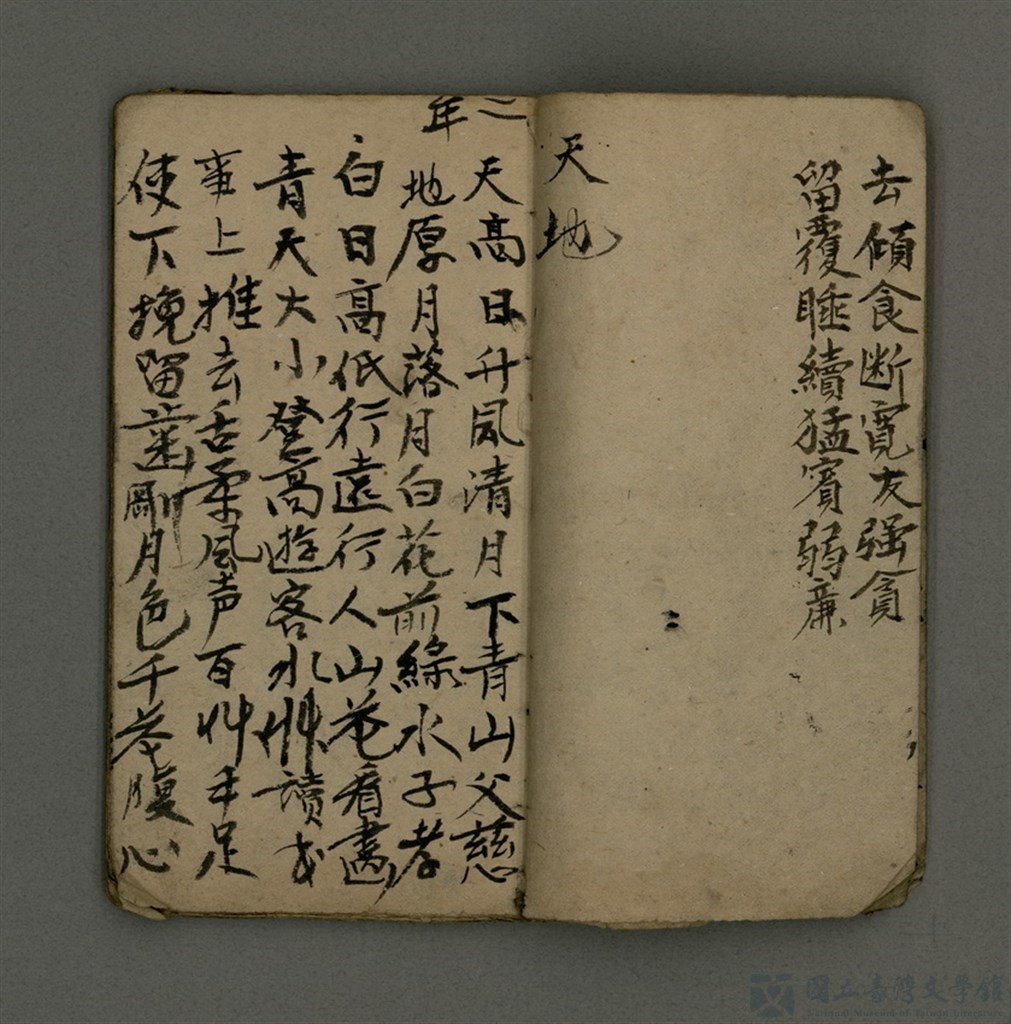 去傾食断寛友强貪
留覆睡續猛賓弱廉
天地
二年
天高日升風清月下青山父慈
地原月落月白花前綠水子孝
白日高低行遠行人山花看書
青天大小登高遊客水草讀
事上推去舌柔風声百艸手足
使下挽留歯剛月色千花腹心
國立臺灣文學館